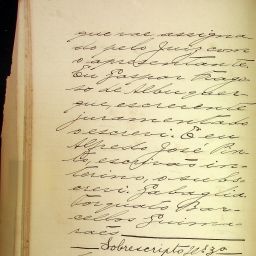 que vae assigna
do pelo Juiz com
o apresentante.
Eu Gaspar Frago
so de Albuquer-
que, escrevente
juramentado
o escrevi. E eu
Alfredo José Bar
bo, escrivão in-
terino, o subs-
crevi. Gabaglia
Torquato Bar-
cellos Guima
raes
Sobrescripto nº 30